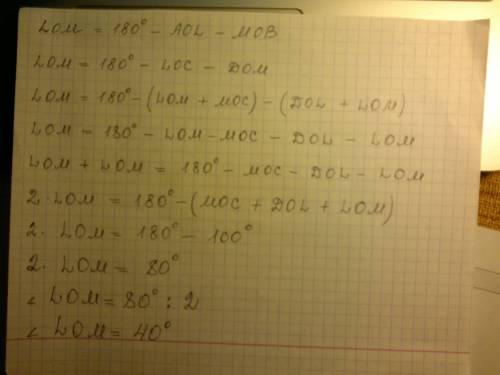 LOM = 180° - AOL - MOB
LOM = 180° - LOC - DOM
LOM = 180° - (LOM + MOC) - (DOL + LOM)
LOM = 180° - LOM - MOC - DOL - LOM
LOM + LOM = 180° - MOC - DOL - LOM
2·LOM = 180° - (MOC + DOL + LOM)
2. LOM = 180° - 100°
2. LOM = 80°
∠ LOM = 80° : 2
∠ LOM = 40°